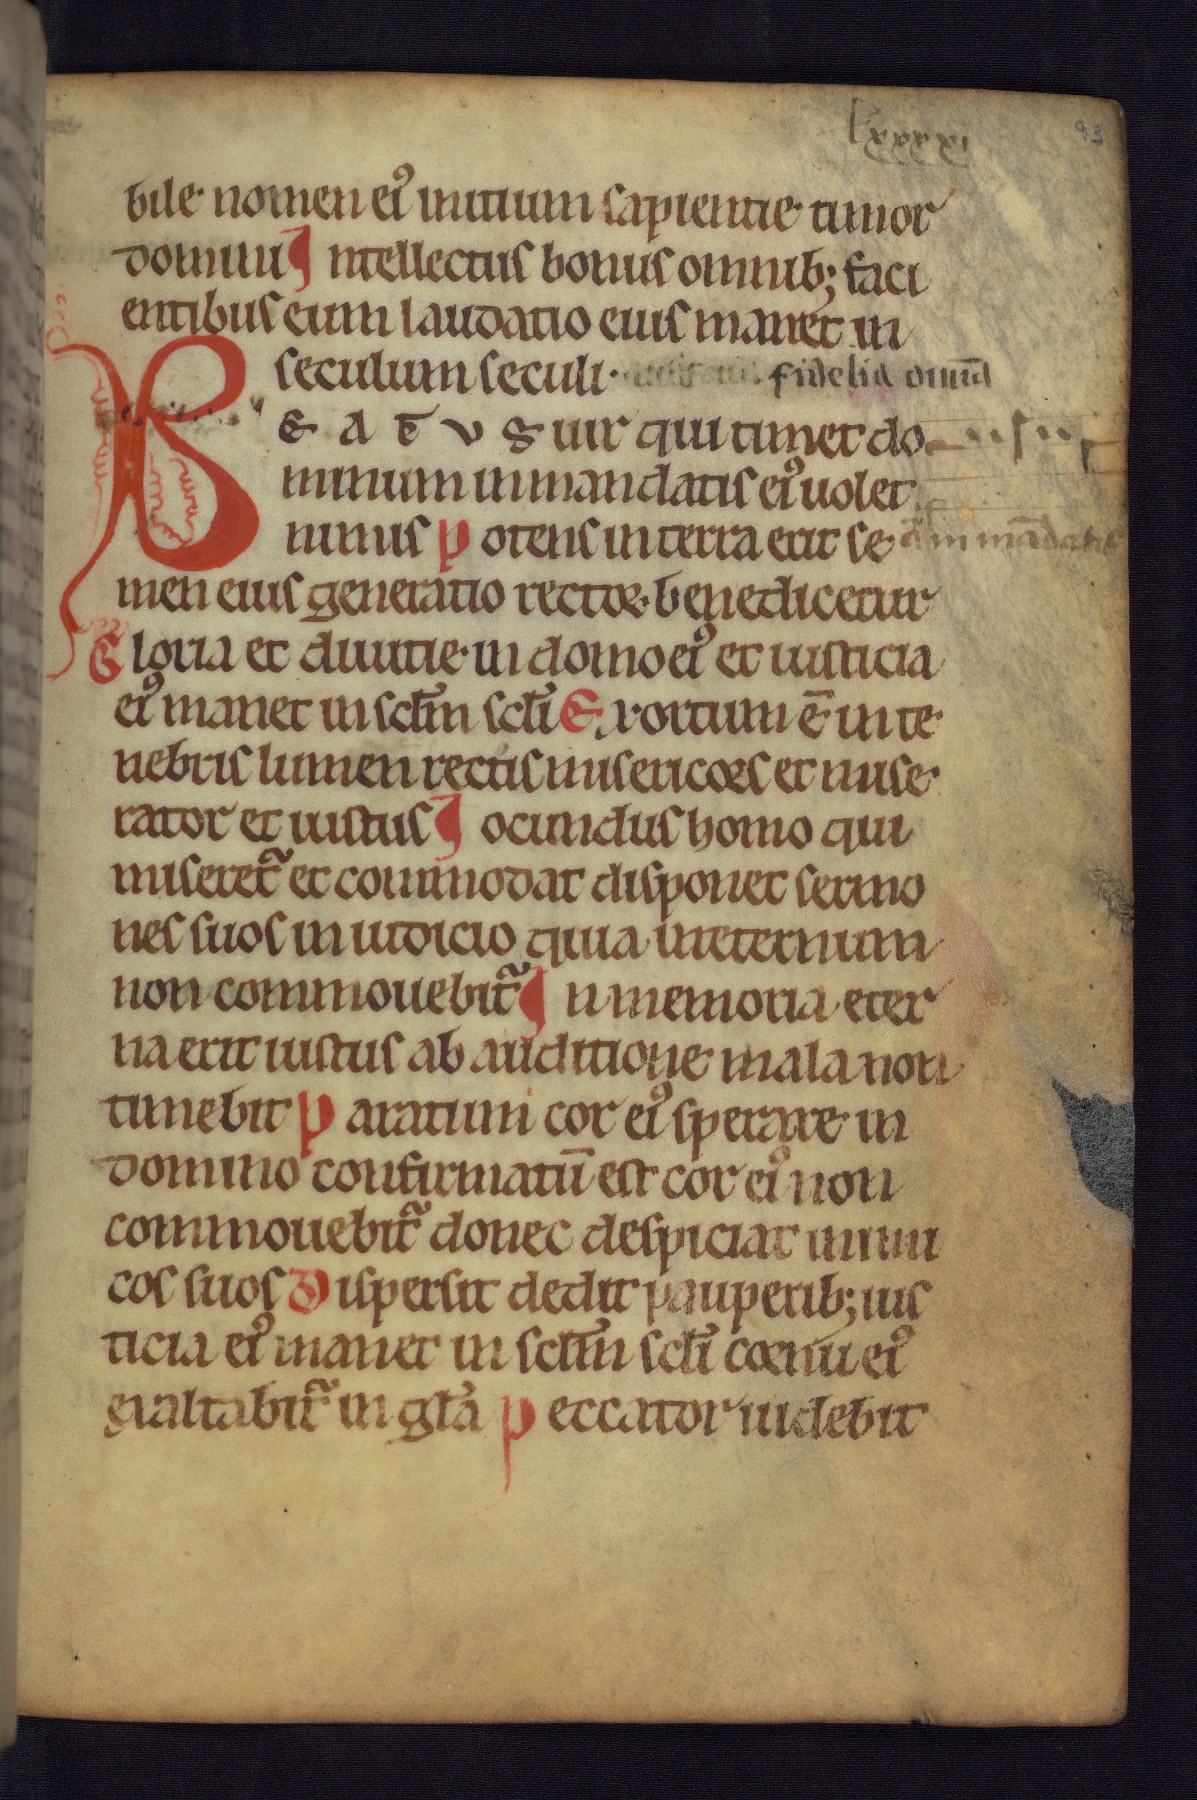 lxxxxi
93
bile nomen eiꝰ initium sapientie timor
domini I ntellectus bonus omnib; faci
entibus eum laudatio eius manet in
seculum seculi · fidelia om̄ia
B E A T̄ V S uir qui timet do
minum in mandatis eiꝰ uolet
nimis P otens in terra erit se
a in mādatis
men eius generatio rectoꝝ benedicetur
G loria et diuitie in domo eiꝰ et iusticia
eiꝰ manet in sctm̄ sctī E xortum ē in te
nebris lumen rectis misericors et mise
rator et iustus I ocundus homo qui
miseret̃ et commodat disponet sermo
nes suos in iudicio quia in eternum
non commouebit̃ I n memoria eter
na erit iustus ab auditione mala non
timebit P aratum cor eiꝰ sperare in
domino confirmatū est cor eiꝰ non
commouebit̃ donec despiciat inimi
cos suos D ispersit dedit pauperib; ius
ticia eiꝰ manet in sctm̄ sctī cornu eiꝰ
exaltabit̃ in gl̄a P eccator uidebit